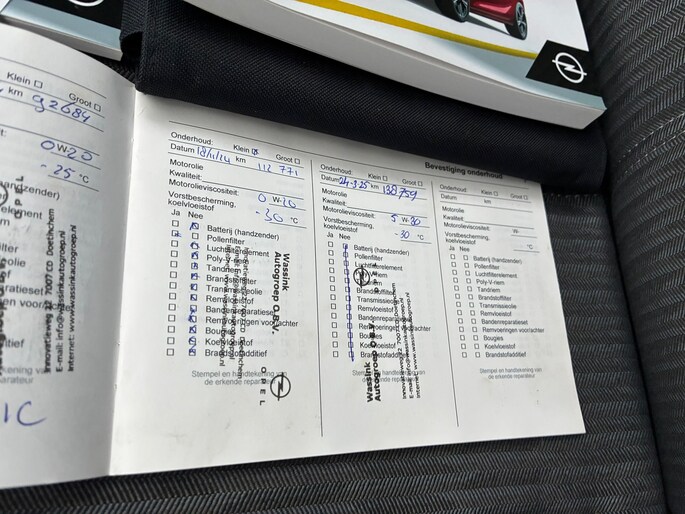 Klein ☐
Groot ☐
km 92684
0W-20
-25 °C
andzender)
element
m
ilter
olie
f
aratieset
en voor/achter
f
ditief
Innovatieweg 12 7007 CD Doetinchem
E-mail: info@wassinkautogroep.nl
Internet: www.wassinkautogroep.nl
IC
Onderhoud: Klein ☒ Groot ☐
Datum km 112 771
Motorolie
Kwaliteit:
Motorolieviscositeit: 0 W-20
Vorstbescherming,
koelvloeistof -30 °C
Ja Nee
Batterij (handzender)
Pollenfilter
Luchtfilterelement
Poly-V-riem
Tandriem
Brandstoffilter
Transmissieolie
Remvloeistof
Bandenreparatieset
Remvoeringen voor/achter
Bougies
Koelvloeistof
Brandstofadditief
Stempel en handtekening van
de erkende reparateur
Wassink
Autogroep O.B.V.
OPEL
Onderhoud: Klein ☐ Groot ☐
Datum 24-3-25 km 138759
Motorolie
Kwaliteit:
Motorolieviscositeit: 5 W-30
Vorstbescherming,
koelvloeistof -30 °C
Ja Nee
Batterij (handzender)
Pollenfilter
Luchtfilterelement
Poly-V-riem
Tandriem
Brandstoffilter
Transmissieolie
Remvloeistof
Bandenreparatieset
Remvoeringen voor/achter
Bougies
Koelvloeistof
Brandstofadditief
Stempel en handtekening van
de erkende reparateur
Wassink
Autogroep O.B.V.
Innovatieweg 12 7007 CD Doetinchem
E-mail: info@wassinkautogroep.nl
Internet: www.wassinkautogroep.nl
Bevestiging onderhoud
Onderhoud: Klein ☐ Groot ☐
Datum km
Motorolie
Kwaliteit:
Motorolieviscositeit: W-
Vorstbescherming,
koelvloeistof °C
Ja Nee
Batterij (handzender)
Pollenfilter
Luchtfilterelement
Poly-V-riem
Tandriem
Brandstoffilter
Transmissieolie
Remvloeistof
Bandenreparatieset
Remvoeringen voor/achter
Bougies
Koelvloeistof
Brandstofadditief
Stempel en handtekening van
de erkende reparateur